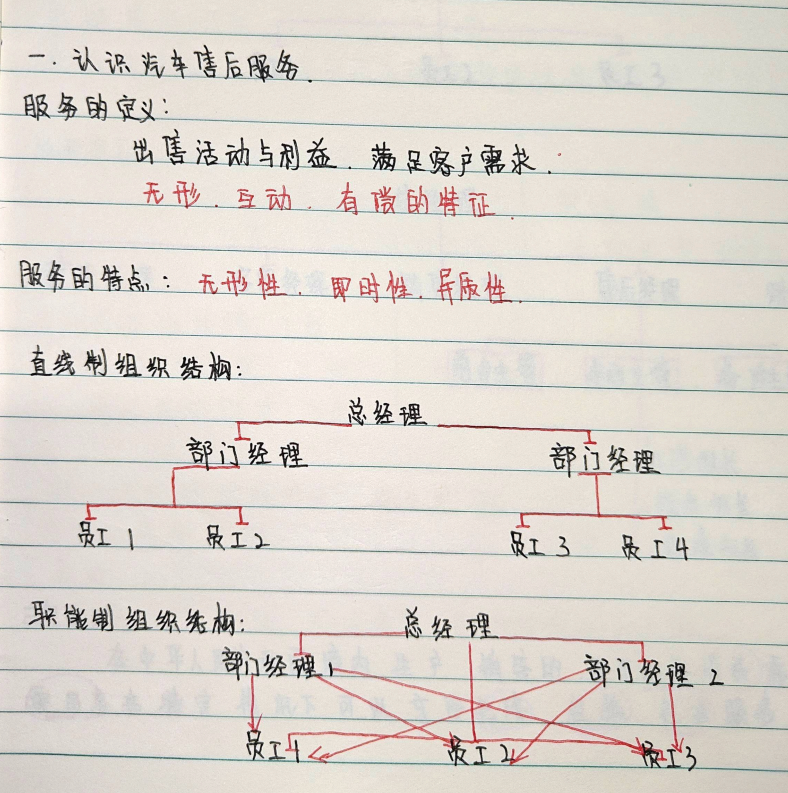 一.认识汽车售后服务.
服务的定义:
出售活动与利益.满足客户需求.
无形.互动.有偿的特征.
服务的特点: 无形性.即时性.异质性.
直线制组织结构:
总经理
部门经理 部门经理
员工1 员工2 员工3 员工4
职能制组织结构: 总经理
部门经理1 部门经理2
员工1 员工2 员工3